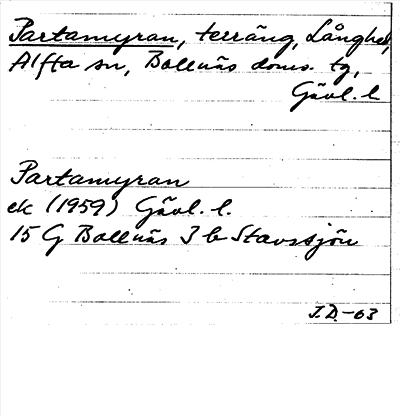 Partamyran, terräng, Långhed,
Alfta sn, Bollnäs doms. tg,
Gävl. l.
Partamyran
ek (1959) Gävl. l.
15 G Bollnäs 3 b Stavssjön
J.D.-63